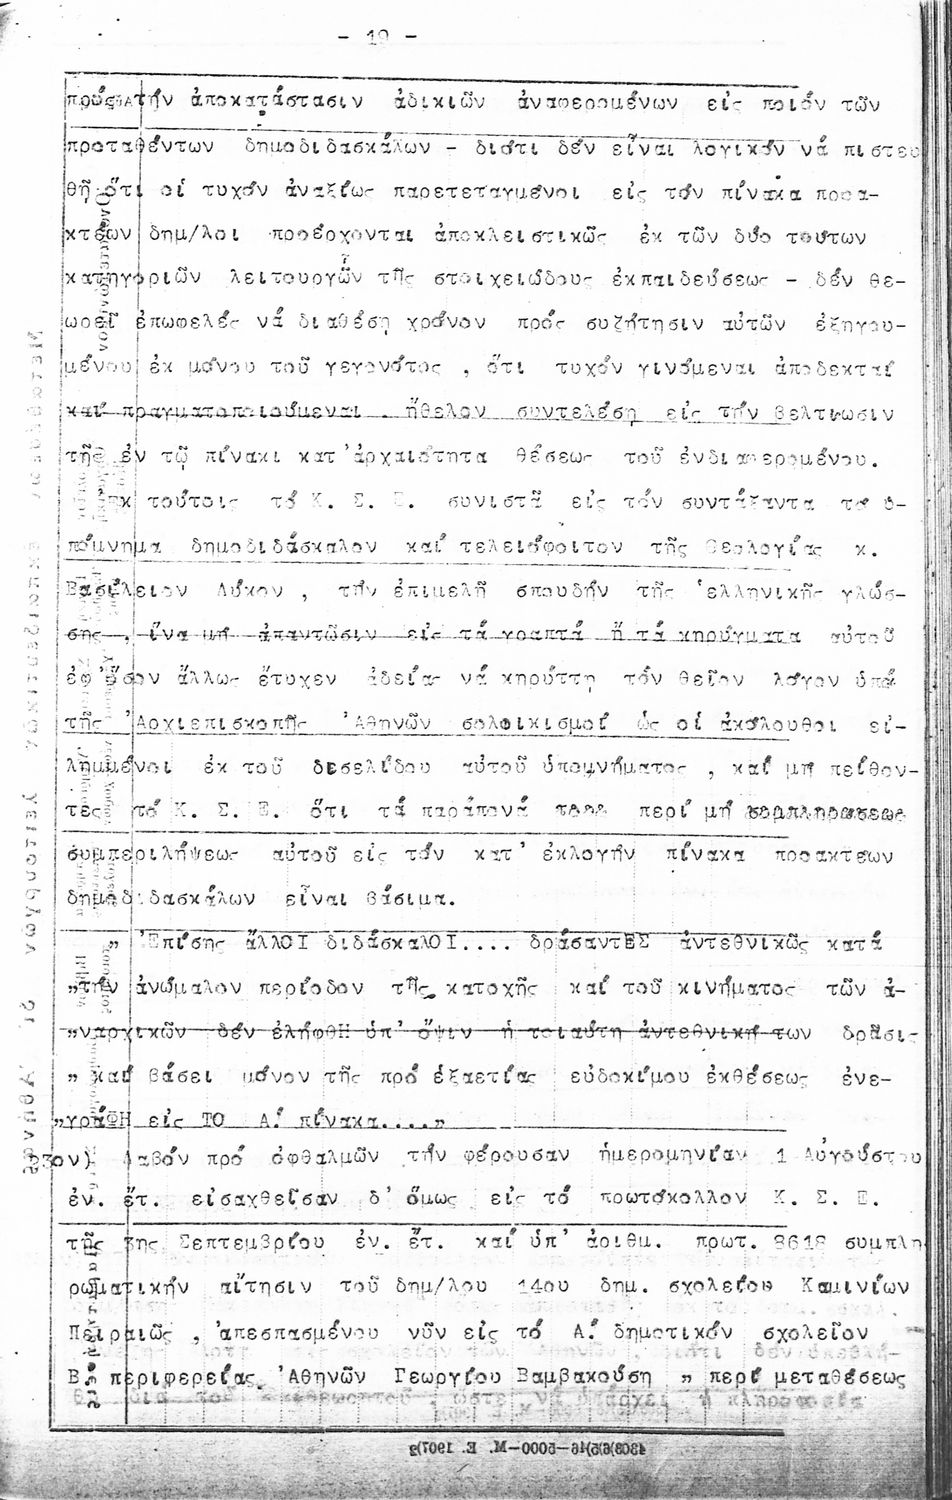 - 19 -
πρός τήν ἀποκατάστασιν ἀδικιῶν ἀναφερομένων εἰς ποιόν τῶν
προταθέντων δημοδιδασκάλων - διότι δέν εἶναι λογικόν νά πιστευ
θῇ ὅτι οἱ τυχόν ἀναξίως παρετεταγμένοι εἰς τόν πίνακα προα-
κτέων δημ/λοι προέρχονται ἀποκλειστικῶς ἐκ τῶν δύο τούτων
κατηγοριῶν λειτουργῶν τῆς στοιχειώδους ἐκπαιδεύσεως - δέν θε-
ωρεῖ ἐπωφελές νά διαθέσῃ χρόνον πρός συζήτησιν αὐτῶν ἐξηγου-
μένου ἐκ μόνου τοῦ γεγονότος , ὅτι τυχόν γινόμεναι ἀποδεκταί
καί πραγματοποιούμεναι . ἤθελον συντελέσῃ εἰς τήν βελτίωσιν
τῆς ἐν τῷ πίνακι κατ'ἀρχαιότητα θέσεως τοῦ ἐνδιαφερομένου.
Ἐκ τούτοις τό Κ. Σ. Ε. συνιστᾶ εἰς τόν συντάξαντα τό ὑ-
πόμνημα δημοδιδάσκαλον καί τελειόφοιτον τῆς Θεολογίας κ.
Βασίλειον Λύκον , τήν ἐπιμελῆ σπουδήν τῆς ἑλληνικῆς γλώσ-
σης , ἵνα μή ἀπαντῶσιν εἰς τά γραπτά ἤ τά κηρύγματα αὐτοῦ
ἐφ'ὅσον ἄλλως ἔτυχεν ἀδείας νά κηρύττῃ τόν θεῖον λόγον ὑπό
τῆς Ἀρχιεπισκοπῆς Ἀθηνῶν σολοικισμοί ὡς οἱ ἀκόλουθοι εἰ-
λημμένοι ἐκ τοῦ δεσελίδου αὐτοῦ ὑπομνήματος , καί μή πείθον-
τες τό Κ. Σ. Ε. ὅτι τά παράπονά του περί μή συμπληρώσεως
συμπεριλήψεως αὐτοῦ εἰς τόν κατ' ἐκλογήν πίνακα προακτέων
δημοδιδασκάλων εἶναι βάσιμα.
„ Ἐπίσης ἄλλΟΙ διδάσκαλΟΙ.... δράσαντΕΣ ἀντεθνικῶς κατά
„τήν ἀνώμαλον περίοδον τῆς κατοχῆς καί τοῦ κινήματος τῶν ἀ-
„ναρχικῶν δέν ἐλήφθΗ ὑπ' ὄψιν ἡ τοιαύτη ἀντεθνική των δρᾶσις
„ καί βάσει μόνον τῆς πρό ἑξαετίας εὐδοκίμου ἐκθέσεως ἐνε-
„γράΦΗ εἰς ΤΟ Α.΄ πίνακα....„
93ον) Λαβόν πρό ὀφθαλμῶν τήν φέρουσαν ἡμερομηνίαν 1 Αὐγούστου
ἐν. ἔτ. εἰσαχθεῖσαν δ' ὅμως εἰς τό πρωτόκολλον Κ. Σ. Ε.
τῆς 3ης Σεπτεμβρίου ἐν. ἔτ. καί ὑπ' ἀριθμ. πρωτ. 8618 συμπλη
ρωματικήν αἴτησιν τοῦ δημ/λου 14ου δημ. σχολείου Καμινίων
Πειραιῶς , ἀπεσπασμένου νῦν εἰς τό Α.΄ δημοτικόν σχολεῖον
Β. περιφερείας Ἀθηνῶν Γεωργίου Βαμβακούση „ περί μεταθέσεως